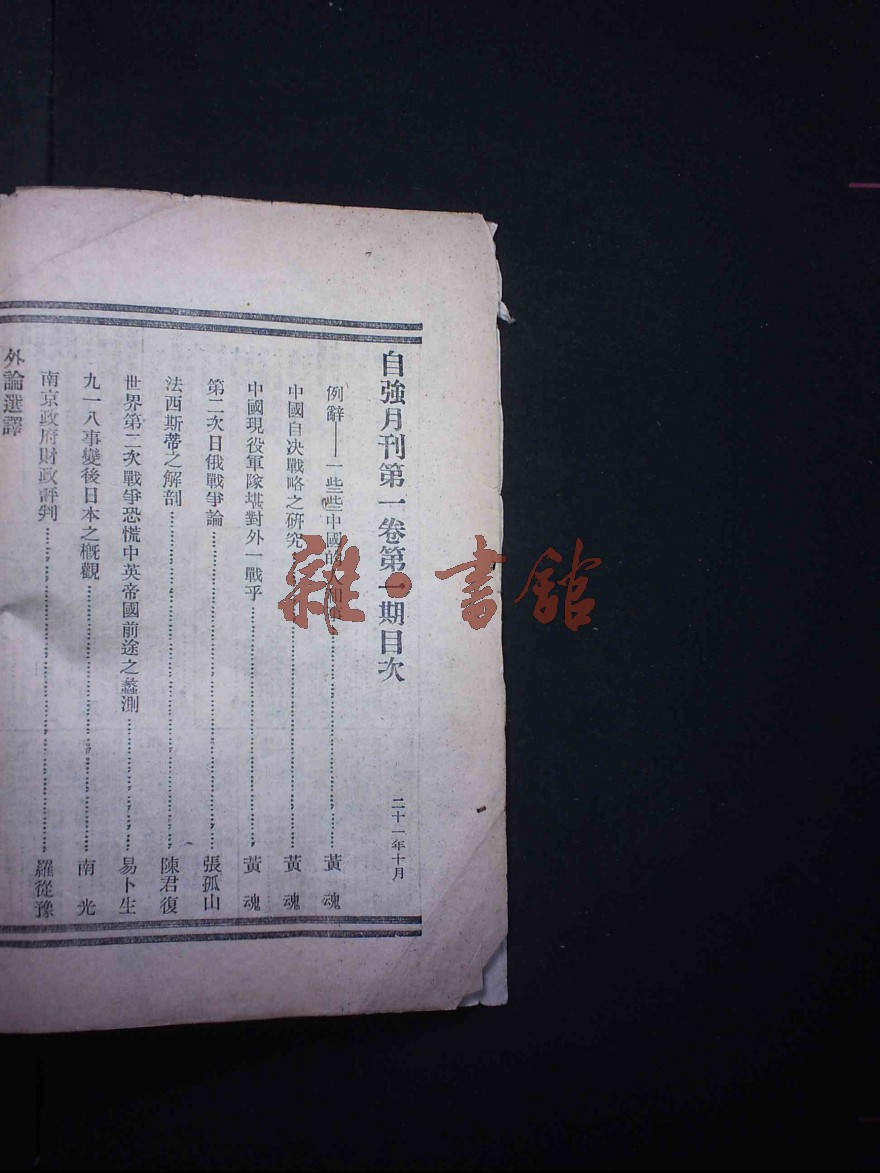 自強月刊第一卷第一期目次
二十一年十月
例辭——一些些中國的人和事……黃魂
中國自決戰略之研究……黃魂
中國現役軍隊堪對外一戰乎……黃魂
第二次日俄戰爭論……張孤山
法西斯蒂之解剖……陳君復
世界第二次戰爭恐慌中英帝國前途之蠡測……易卜生
九一八事變後日本之概觀……南光
南京政府財政評判……羅從豫
外論選譯
雜·書館